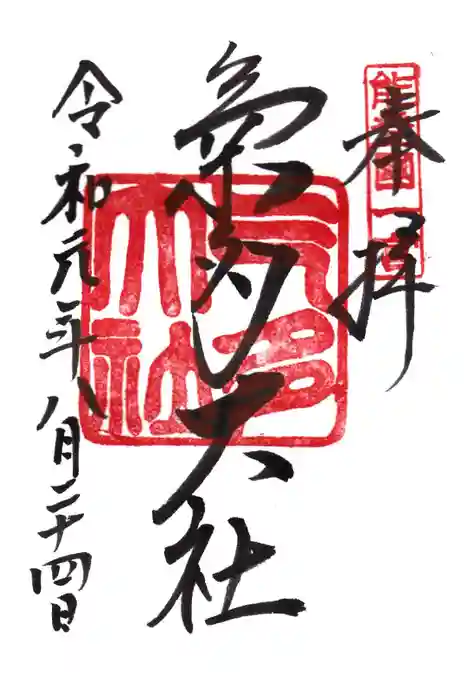 奉拝
能登國一宮
氣多大社
气多大社
令和元年八月二十四日